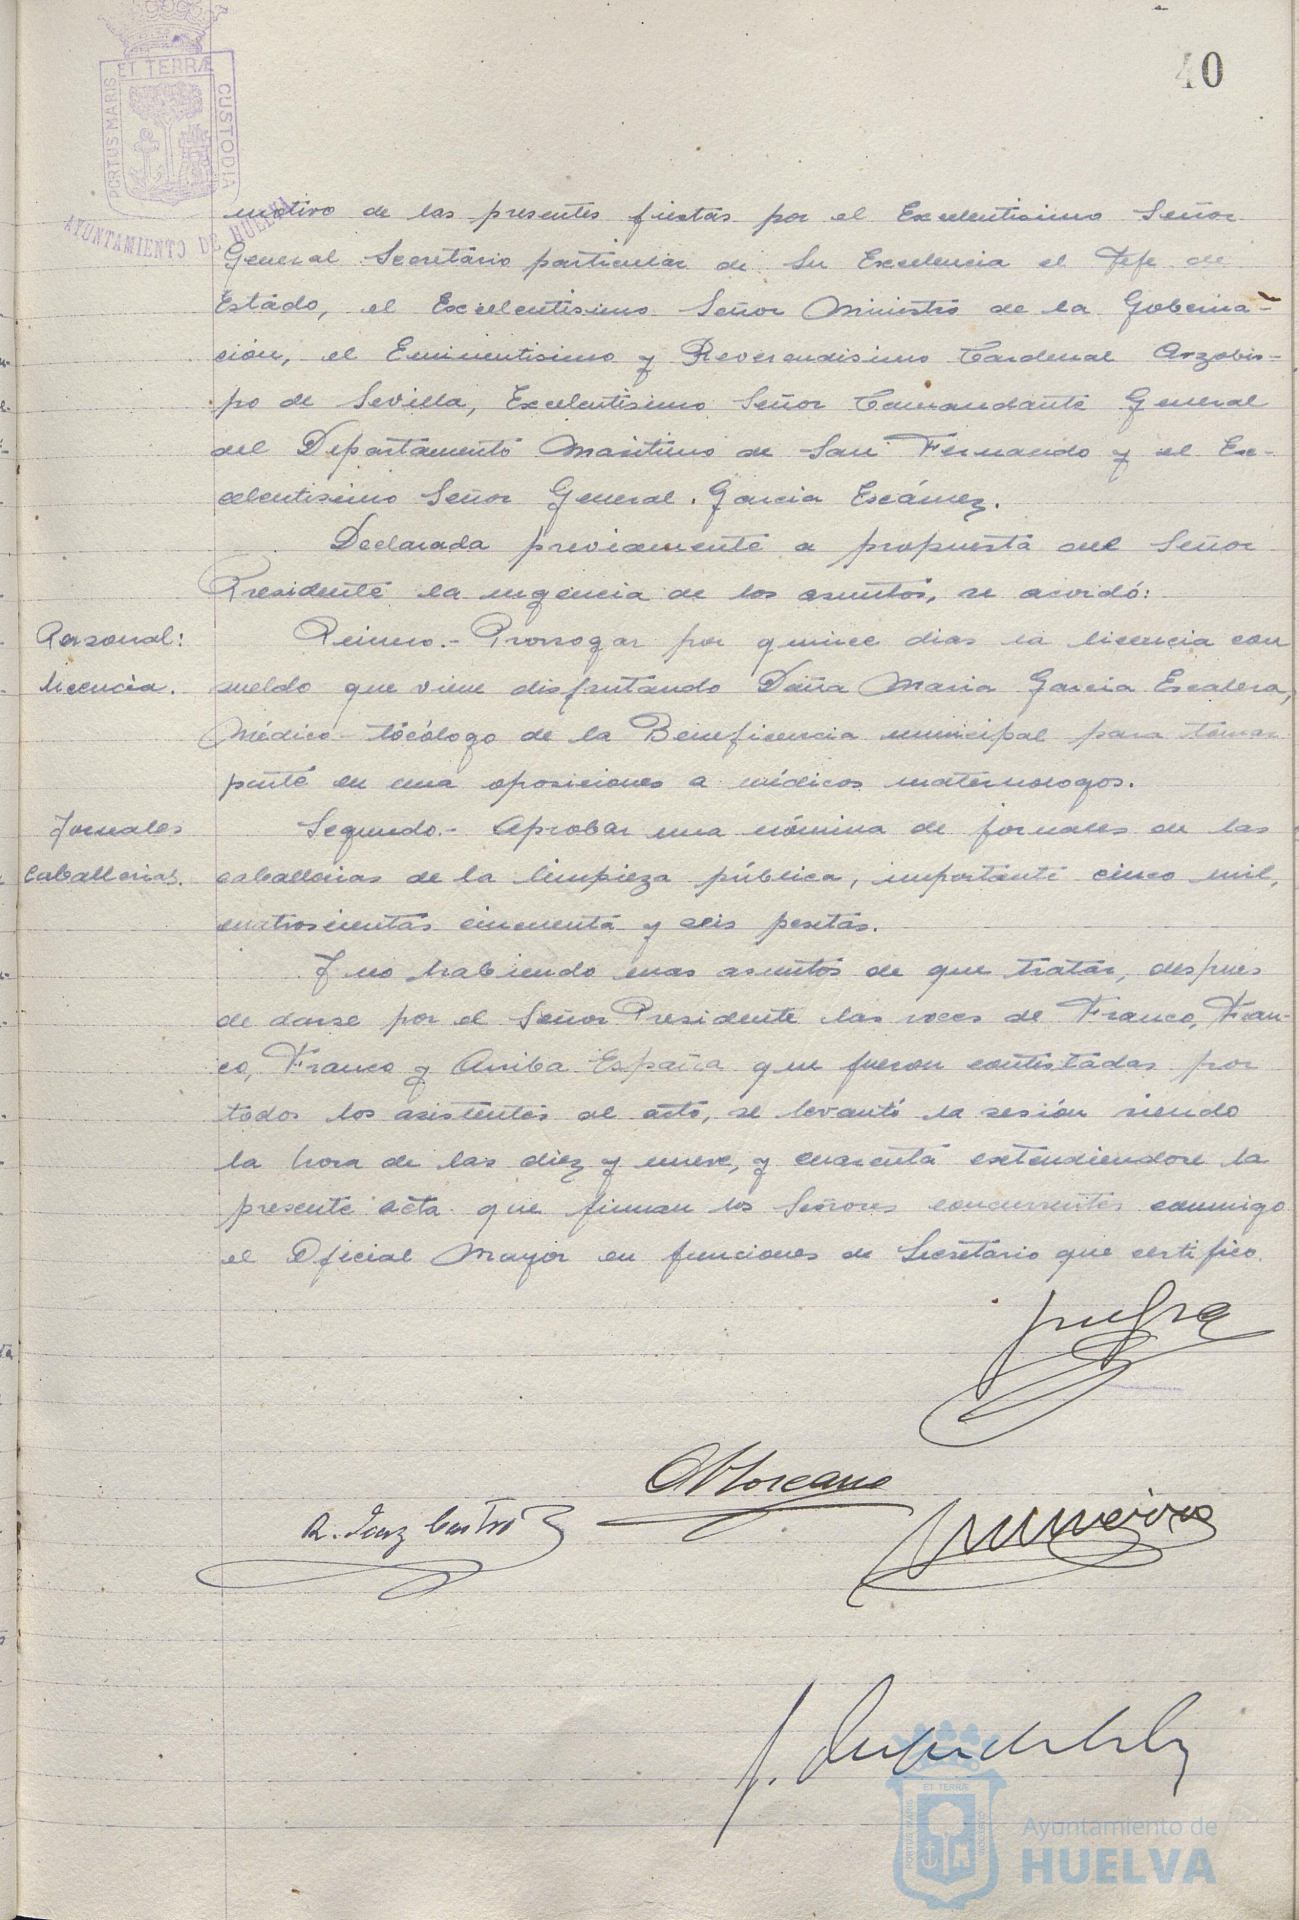 40
PORTUS MARIS ET TERRÆ CUSTODIA
AYUNTAMIENTO DE HUELVA
motivo de las presentes fiestas por el Excelentisimo Señor
General Secretario particular de Su Excelencia el Jefe de
Estado, el Excelentisimo Señor Ministro de la Goberna-
ción, el Eminentisimo y Reverendisimo Cardenal Arzobis-
po de Sevilla, Excelentisimo Señor Comandante General
del Departamento Maritimo de San Fernando y el Exc-
celentisimo Señor General Garcia Escámez.
Declarada previamente a propuesta del Señor
Presidente la urgencia de los asuntos, se acordó:
Personal: Primero.- Prorrogar por quince dias la licencia con
licencia. sueldo que viene disfrutando Doña Maria Garcia Escalera,
Médico-tócólogo de la Beneficencia municipal para tomar
parte en una oposiciones a médicos maternologos.
Jornales Segundo.- Aprobar una nómina de jornales en las
Caballerias. caballerias de la limpieza pública, importante cinco mil,
cuatrosientas cincuenta y seis pesetas.
Y no habiendo mas asuntos de que tratar, despues
de darse por el Señor Presidente las voces de Franco, Fran-
co, Franco y Arriba España que fueron contestadas por
todos los asistentes al acto, se levantó la sesión siendo
la hora de las diez y nueve, y cuarenta extendiendose la
presente acta que firman los Señores concurrentes conmigo
el Oficial Mayor en funciones de Secretario que certifico.
R. Castro
ET TERRÆ
PORTUS MARIS CUSTODIA
Ayuntamiento de
HUELVA